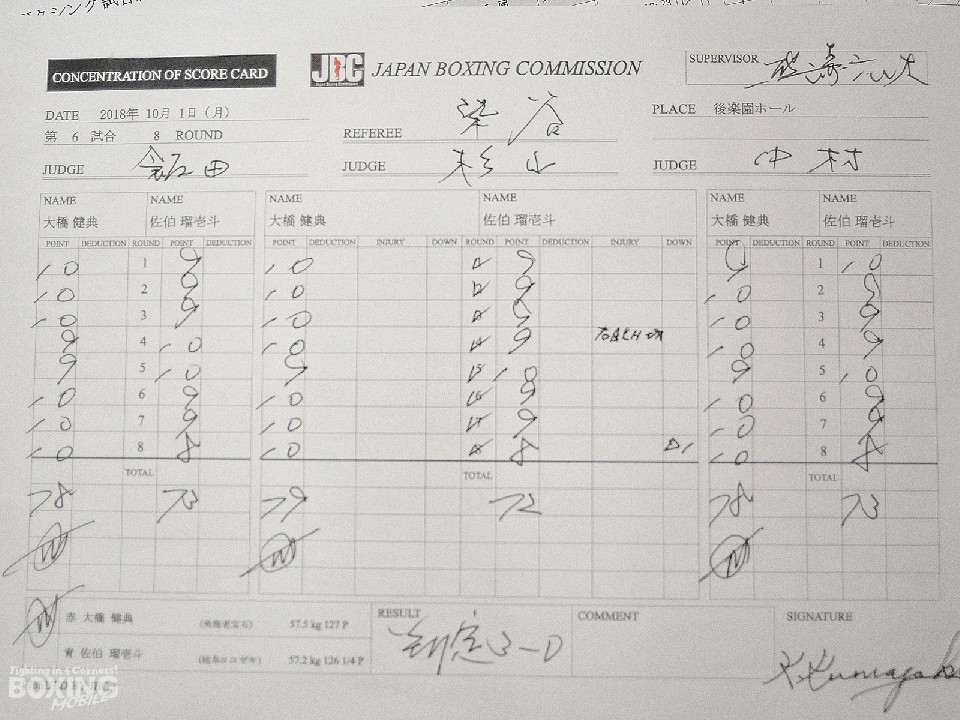 CONCENTRATION OF SCORE CARD
JBC JAPAN BOXING COMMISSION
SUPERVISOR
DATE 2018年 10月 1日 (月)
PLACE 後楽園ホール
第 6 試合 8 ROUND
REFEREE 染谷
JUDGE 飯田 JUDGE 杉山 JUDGE 中村
NAME NAME NAME NAME NAME NAME
大橋 健典 佐伯 瑠壱斗 大橋 健典 佐伯 瑠壱斗 大橋 健典 佐伯 瑠壱斗
POINT DEDUCTION ROUND POINT DEDUCTION POINT DEDUCTION INJURY DOWN ROUND POINT DEDUCTION INJURY DOWN POINT DEDUCTION ROUND POINT DEDUCTION
10 1 9 10 1 9 9 1 10
10 2 9 10 2 9 10 2 9
10 3 9 10 3 9 10 3 9
9 4 10 10 4 9 10 4 9
9 5 10 9 5 10 9 5 10
10 6 9 10 6 9 10 6 9
10 7 9 10 7 9 10 7 9
10 8 8 10 8 8 D1 10 8 8
TOTAL TOTAL TOTAL
78 73 79 72 78 73
赤 大橋 健典 (角海老宝石) 57.5 kg 127 P
青 佐伯 瑠壱斗 57.2 kg 126 1/4 P
RESULT 判定 3-0
COMMENT
SIGNATURE
Fighting in 4 Corners!
BOXING
MOBILE